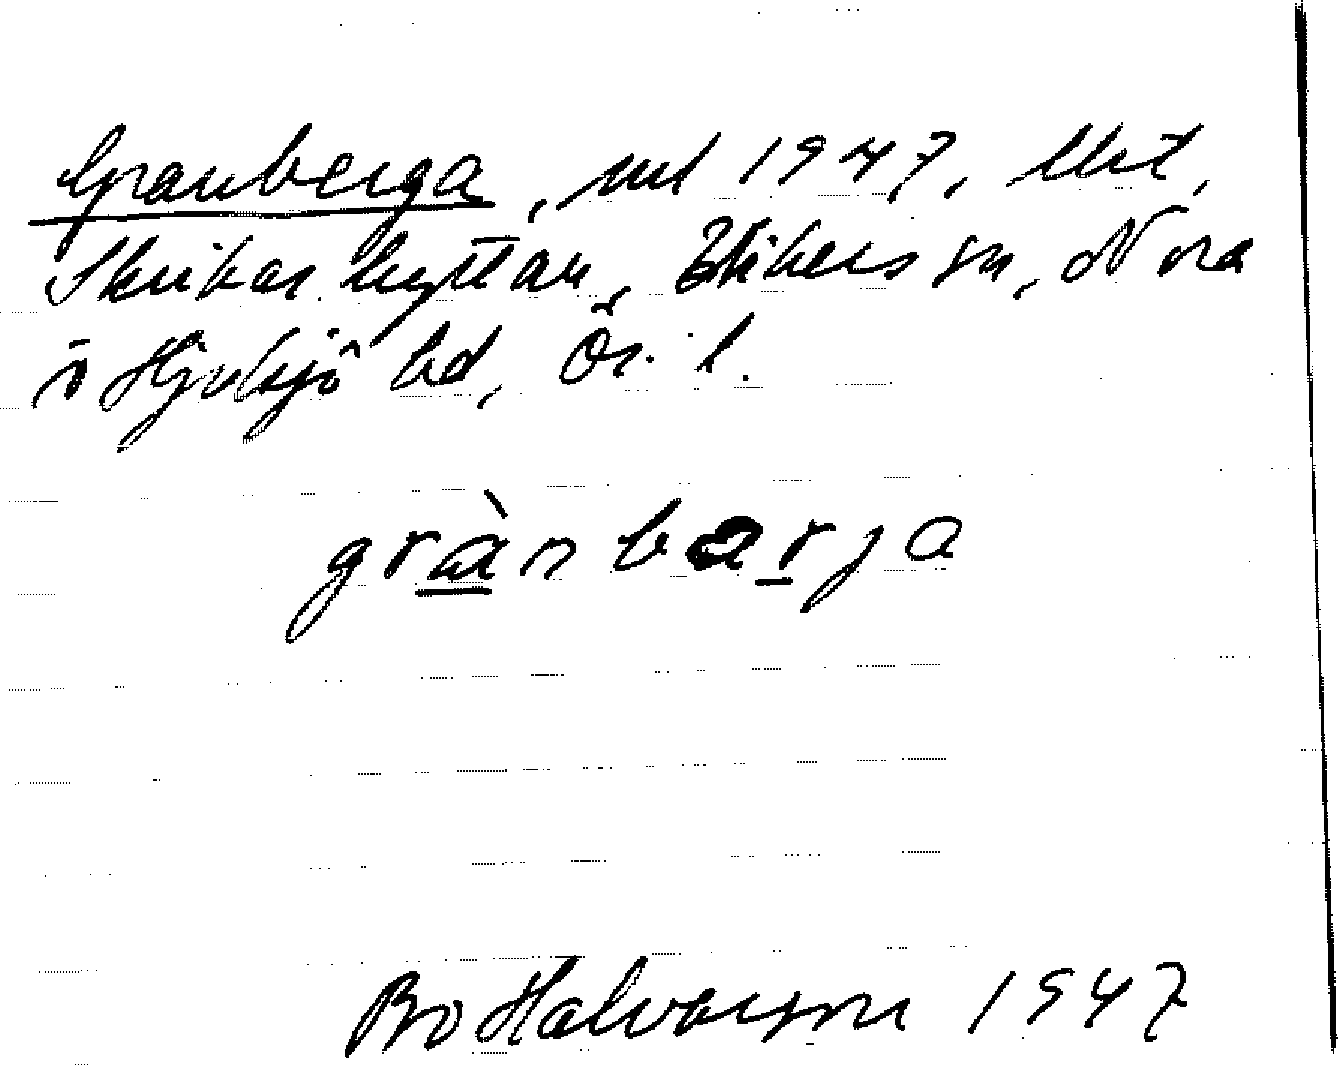 Granberga, nul 1947, Utst,
Skrikarhyttan, Vikers sn, Nora
o Hjulsjö bd, Ör. l.
grànbarja
Bo Halvarson 1947